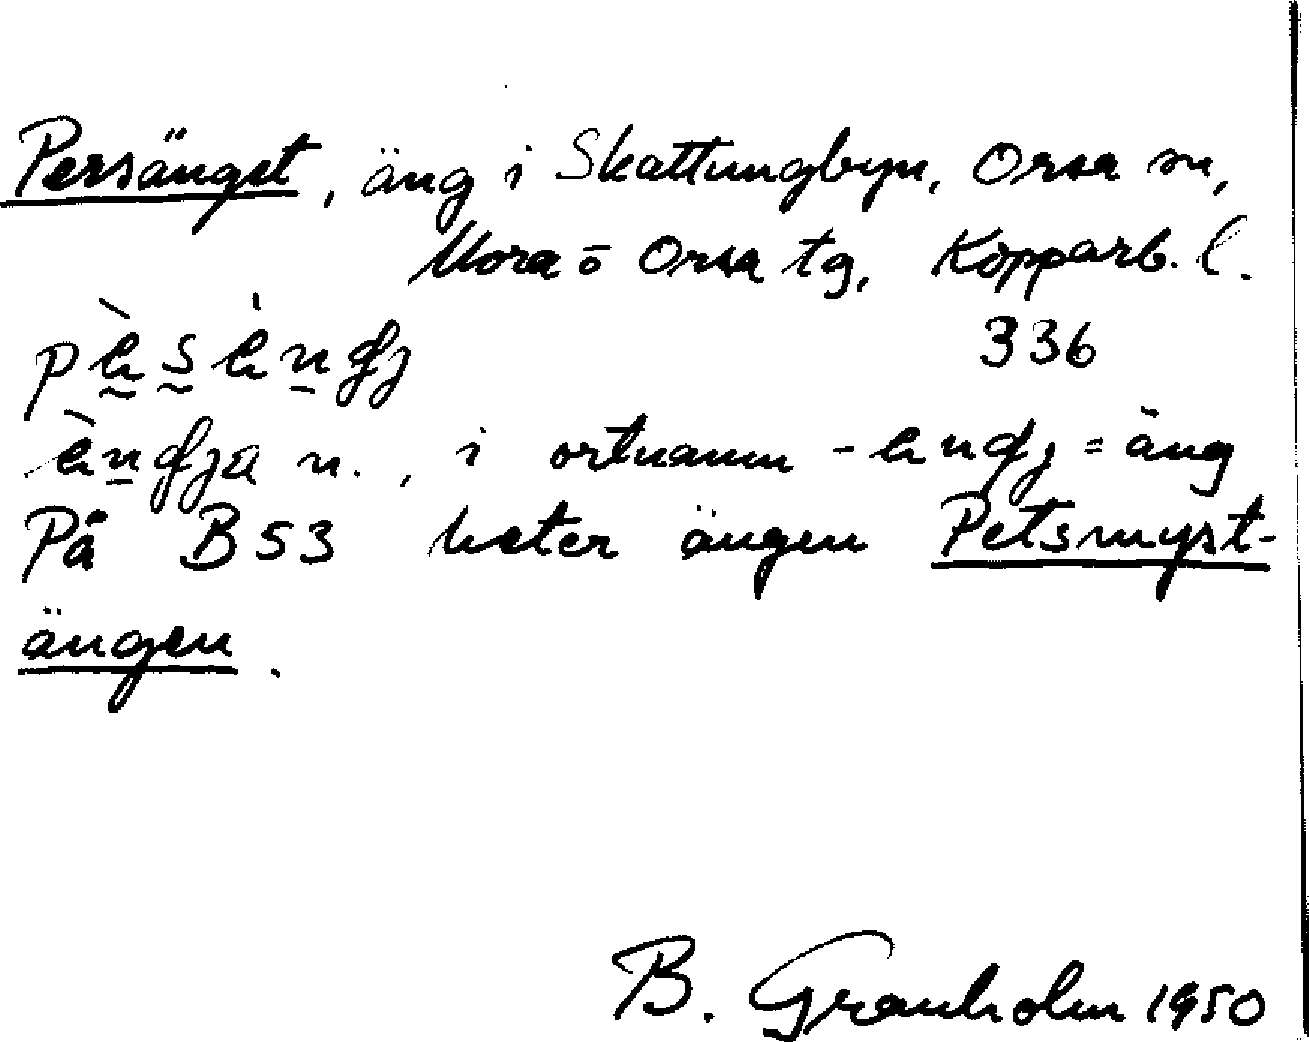 Persänget, äng i Skattungbyn, Orsa sn,
Mora o Orsa tg, Kopparb. l.
336
På B53 heter ängen Petsmyst-
ängen.
n., i ortnamn - = äng
B. Granholm 1950